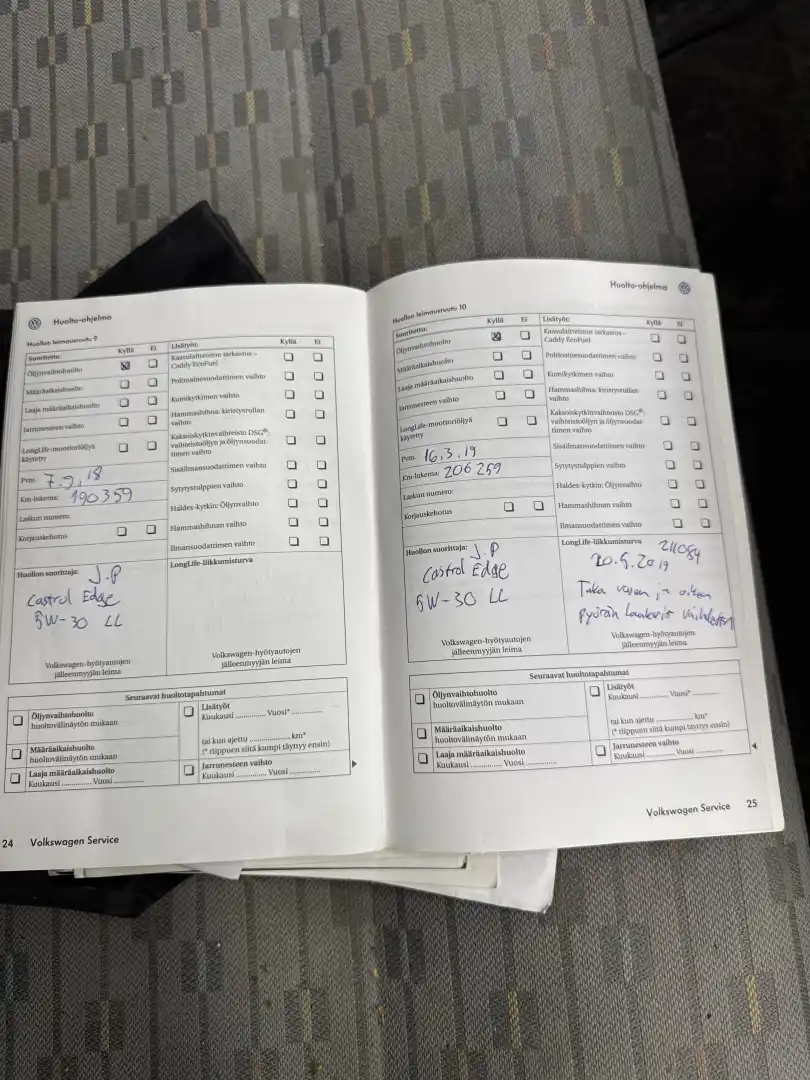 Huolto-ohjelma
Huollon leimausruutu 9
Suoritettu: Kyllä Ei
Öljynvaihtohuolto
Määräaikaishuolto
Laaja määräaikaishuolto
Jarrunesteen vaihto
LongLife-moottoriöljyä
käytetty
Pvm: 7.9.18
Km-lukema: 190359
Laskun numero:
Korjauskehotus
Lisätyöt: Kyllä Ei
Kaasulaitteiston tarkastus –
Caddy EcoFuel
Polttoainesuodattimen vaihto
Kumikytkimen vaihto
Hammashihna: kiristysrullan
vaihto
Kaksoiskytkinvaihteisto DSG®:
vaihteistoöljyn ja öljynsuodat-
timen vaihto
Sisäilmansuodattimen vaihto
Sytytystulppien vaihto
Haldex-kytkin: Öljynvaihto
Hammashihnan vaihto
Ilmansuodattimen vaihto
Huollon suorittaja: J.P
Castrol Edge
5W-30 LL
Volkswagen-hyötyautojen
jälleenmyyjän leima
LongLife-liikkumisturva
Volkswagen-hyötyautojen
jälleenmyyjän leima
Seuraavat huoltotapahtumat
Öljynvaihtohuolto
huoltovälinäytön mukaan
Määräaikaishuolto
huoltovälinäytön mukaan
Laaja määräaikaishuolto
Kuukausi .............. Vuosi ..............
Lisätyöt
Kuukausi .............. Vuosi* ..............
tai kun ajettu .................... km*
(* riippuen siitä kumpi täyttyy ensin)
Jarrunesteen vaihto
Kuukausi .............. Vuosi ..............
24 Volkswagen Service
Huolto-ohjelma
Huollon leimausruutu 10
Suoritettu: Kyllä Ei
Öljynvaihtohuolto
Määräaikaishuolto
Laaja määräaikaishuolto
Jarrunesteen vaihto
LongLife-moottoriöljyä
käytetty
Pvm: 16.3.19
Km-lukema: 206259
Laskun numero:
Korjauskehotus
Lisätyöt: Kyllä Ei
Kaasulaitteiston tarkastus –
Caddy EcoFuel
Polttoainesuodattimen vaihto
Kumikytkimen vaihto
Hammashihna: kiristysrullan
vaihto
Kaksoiskytkinvaihteisto DSG®:
vaihteistoöljyn ja öljynsuodat-
timen vaihto
Sisäilmansuodattimen vaihto
Sytytystulppien vaihto
Haldex-kytkin: Öljynvaihto
Hammashihnan vaihto
Ilmansuodattimen vaihto
Huollon suorittaja: J.P
Castrol Edge
5W-30 LL
Volkswagen-hyötyautojen
jälleenmyyjän leima
LongLife-liikkumisturva 211084
20.5.2019
Taka vasen ja oikea
pyörän laakerit
Volkswagen-hyötyautojen
jälleenmyyjän leima
Seuraavat huoltotapahtumat
Öljynvaihtohuolto
huoltovälinäytön mukaan
Määräaikaishuolto
huoltovälinäytön mukaan
Laaja määräaikaishuolto
Kuukausi .............. Vuosi ..............
Lisätyöt
Kuukausi .............. Vuosi* ..............
tai kun ajettu .................... km*
(* riippuen siitä kumpi täyttyy ensin)
Jarrunesteen vaihto
Kuukausi .............. Vuosi ..............
Volkswagen Service 25